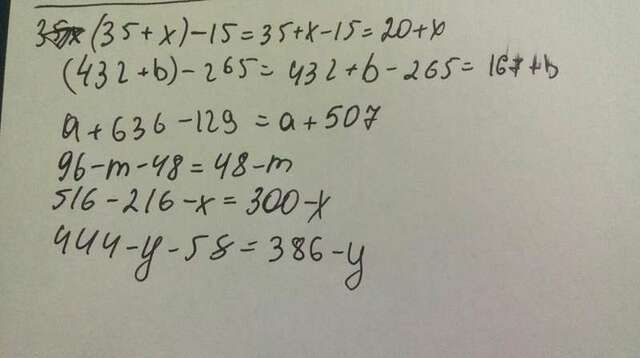 (35+x)-15=35+x-15=20+x
(432+b)-265=432+b-265=167+b
a+636-129=a+507
96-m-48=48-m
516-216-x=300-x
444-y-58=386-y